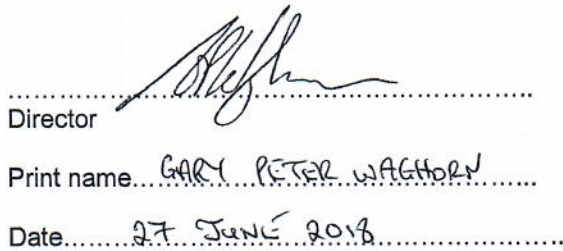 Director
Print name... GARY PETER WAGHORN
Date...... 27 JUNE 2018